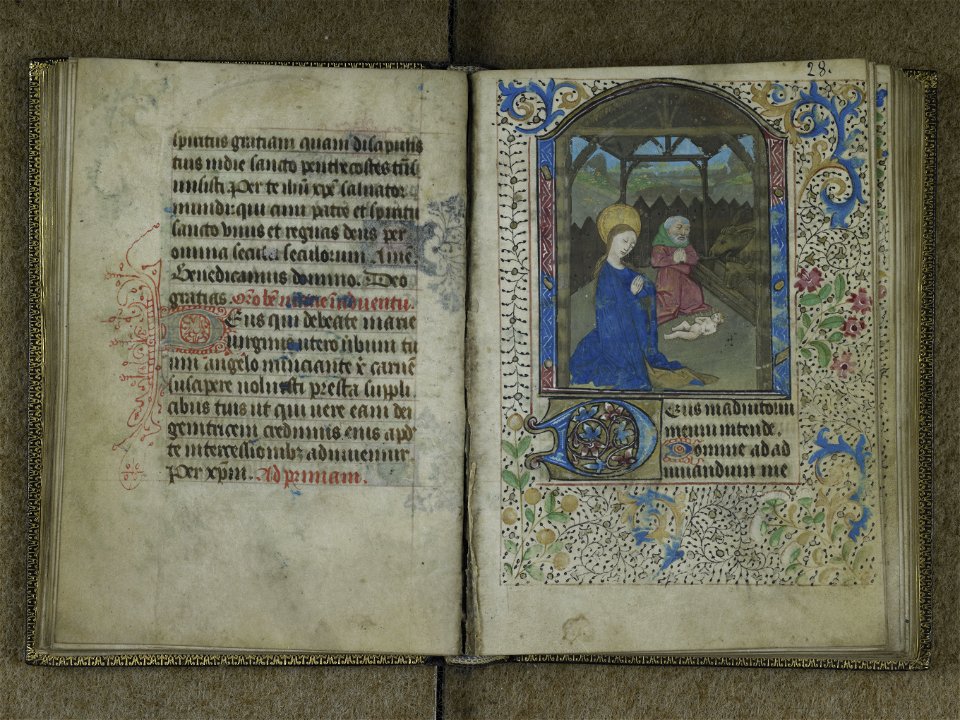 spiritus gratiam quam discipulis
tuis in die sancto penthecostes
misisti Per te ihu xpe saluator
mundi: qui cum patre et spiritu
sancto viuis et regnas deus per
omnia secula seculorum Amē
Benedicamus domino. Deo
gratias.
Deus qui de beate marie
virginis utero ūbum tu
um angelo nunciante carnē
suscipere voluisti presta suppli
cibus tuis ut qui uere eam dei
genitricem credimus eius apd
te intercessionibz adiuuemur.
Per xpm. Ad primam.
28.
Deus in adiutoriū
meum intende.
Domine ad ad
iuuandum me